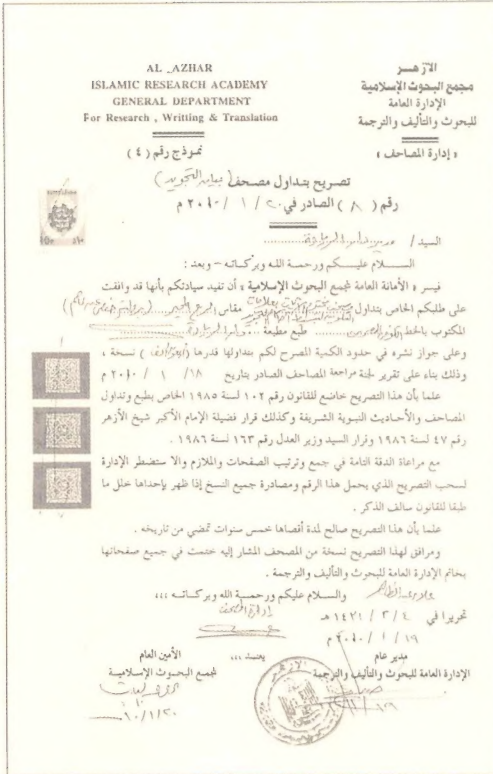 AL _AZHAR
ISLAMIC RESEARCH ACADEMY
GENERAL DEPARTMENT
For Research , Writting & Translation
الأزهــر
مجمع البحوث الإسلامية
الإدارة العامة
للبحوث والتأليف والترجمة
« إدارة المصاحف »
نموذج رقم ( ٤ )
تصريح بتداول مصحف (
رقم ( ٨ ) الصادر في ٢٠ / ١ / ٢٠١٠ م
السيد /
السـلام عليـكم ورحمـة اللـه وبركاتـه - وبعد :
فيسر « الأمانة العامة لمجمع البحوث الإسلامية » أن تفيد سيادتكم بأنها قد وافقت
على طلبكم الخاص بتداول مقاس
المكتوب بالخط طبع مطبعة
وعلى جواز نشره في حدود الكمية المصرح لكم بتداولها قدرها ( ) نسخة ،
وذلك بناء على تقرير لجنة مراجعة المصاحف الصادر بتاريخ ١٨ / ١ / ٢٠١٠ م
علما بأن هذا التصريح خاضع للقانون رقم ١٠٢ لسنة ١٩٨٥ الخاص بطبع وتداول
المصاحف والأحاديث النبوية الشريفة وكذلك قرار فضيلة الإمام الأكبر شيخ الأزهر
رقم ٤٧ لسنة ١٩٨٦ وقرار السيد وزير العدل رقم ١٦٣ لسنة ١٩٨٦ .
مع مراعاة الدقة التامة في جمع وترتيب الصفحات والملازم والا ستضطر الإدارة
لسحب التصريح الذي يحمل هذا الرقم ومصادرة جميع النسخ إذا ظهر بإحداها خلل ما
طبقا للقانون سالف الذكر .
علما بأن هذا التصريح صالح لمدة أقصاها خمس سنوات تمضي من تاريخه .
ومرافق لهذا التصريح نسخة من المصحف المشار إليه ختمت في جميع صفحاتها
بخاتم الإدارة العامة للبحوث والتأليف والترجمة .
والسـلام عليكم ورحمـة اللـه وبركاتـه ،،،
تحريرا في ٤ / ٢ / ١٤٣١ هـ
١٩ / ١ / ٢٠١٠ م
مدير عام
الإدارة العامة للبحوث والتأليف والترجمة
يعتمـد ،،،
الأمين العام
لمجمع البحـوث الإسلاميـة